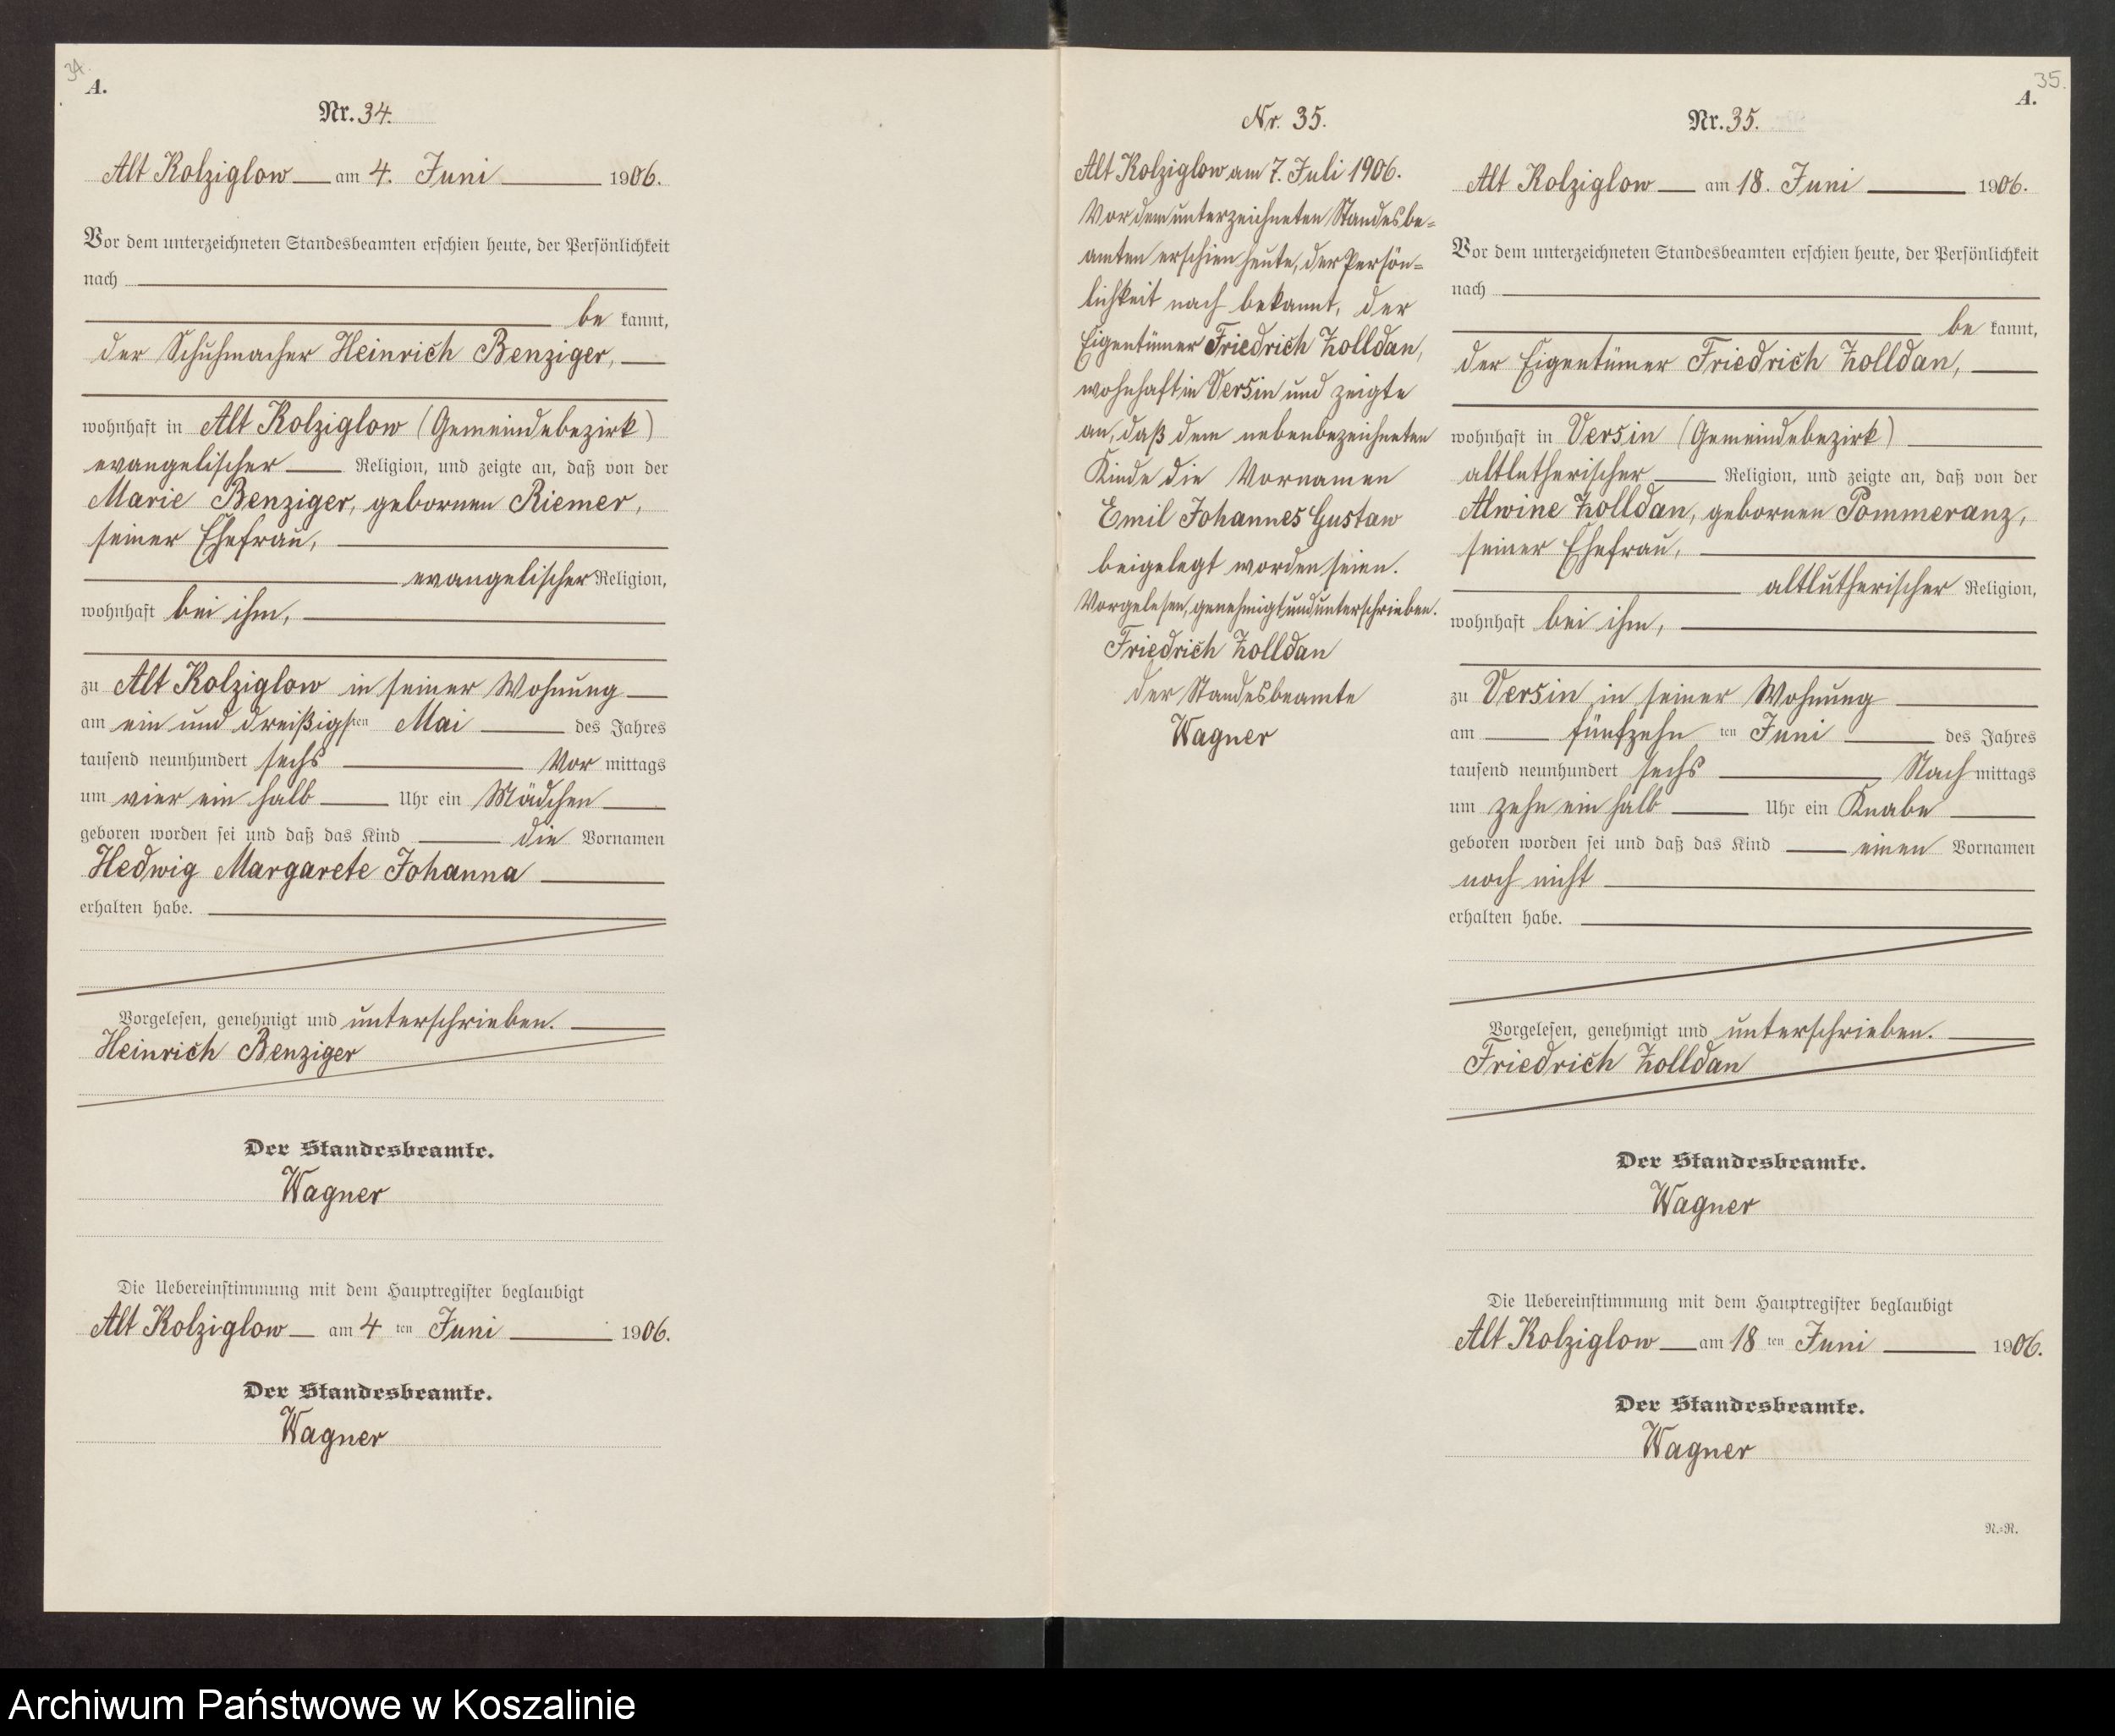 34.
A.
Nr. 34.
Alt Kolziglow am 4. Juni 1906.
Vor dem unterzeichneten Standesbeamten erschien heute, der Persönlichkeit
nach
be kannt,
der Schuhmacher Heinrich Benziger,
wohnhaft in Alt Kolziglow (Gemeindebezirk)
evangelischer Religion, und zeigte an, daß von der
Marie Benziger, gebornen Riemer,
seiner Ehefrau,
evangelischer Religion,
wohnhaft bei ihm,
zu Alt Kolziglow in seiner Wohnung
am ein und dreißigsten Mai des Jahres
tausend neunhundert sechs Vor mittags
um vier ein halb Uhr ein Mädchen
geboren worden sei und daß das Kind die Vornamen
Hedwig Margarete Johanna
erhalten habe.
Vorgelesen, genehmigt und unterschrieben.
Heinrich Benziger
Der Standesbeamte.
Wagner
Die Uebereinstimmung mit dem Hauptregister beglaubigt
Alt Kolziglow am 4 ten Juni 1906.
Der Standesbeamte.
Wagner
Nr. 35.
Alt Kolziglow am 7. Juli 1906.
Vor dem unterzeichneten Standesbe=
amten erschien heute, der Persön=
lichkeit nach bekannt, der
Eigentümer Friedrich Zolldan,
wohnhaft in Versin und zeigte
an, daß dem nebenbezeichneten
Kinde die Vornamen
Emil Johannes Gustaw
beigelegt worden seien.
Vorgelesen, genehmigt und unterschrieben.
Friedrich Zolldan
der Standesbeamte
Wagner
35.
A.
Nr. 35.
Alt Kolziglow am 18. Juni 1906.
Vor dem unterzeichneten Standesbeamten erschien heute, der Persönlichkeit
nach
be kannt,
der Eigentümer Friedrich Zolldan,
wohnhaft in Versin (Gemeindebezirk)
altlutherischer Religion, und zeigte an, daß von der
Alwine Zolldan, gebornen Pommeranz,
seiner Ehefrau,
altlutherischer Religion,
wohnhaft bei ihm,
zu Versin in seiner Wohnung
am fünfzehn ten Juni des Jahres
tausend neunhundert sechs Nach mittags
um zehn ein halb Uhr ein Knabe
geboren worden sei und daß das Kind einen Vornamen
noch nicht
erhalten habe.
Vorgelesen, genehmigt und unterschrieben.
Friedrich Zolldan
Der Standesbeamte.
Wagner
Die Uebereinstimmung mit dem Hauptregister beglaubigt
Alt Kolziglow am 18 ten Juni 1906.
Der Standesbeamte.
Wagner
N.=R.
Archiwum Państwowe w Koszalinie